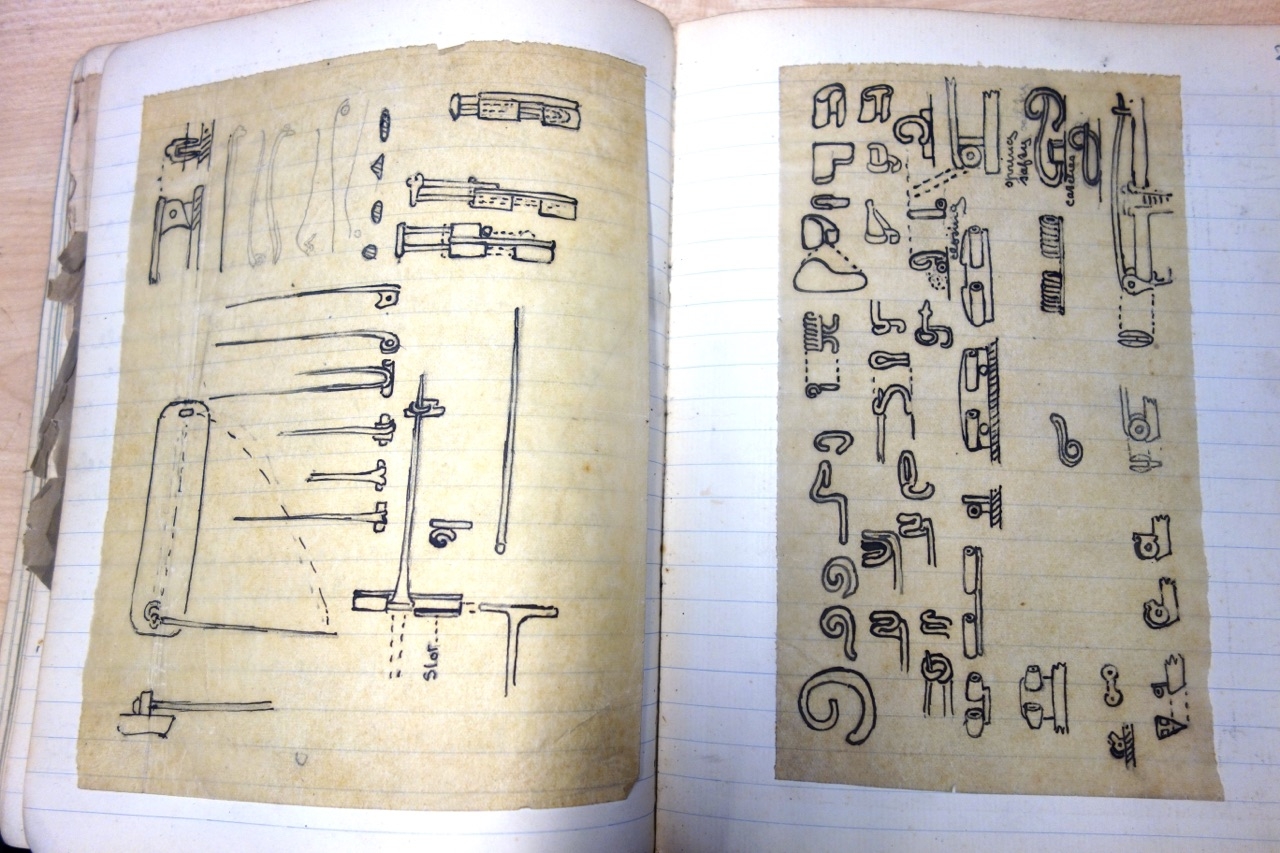 Slot.
springs
safety
catches
closing